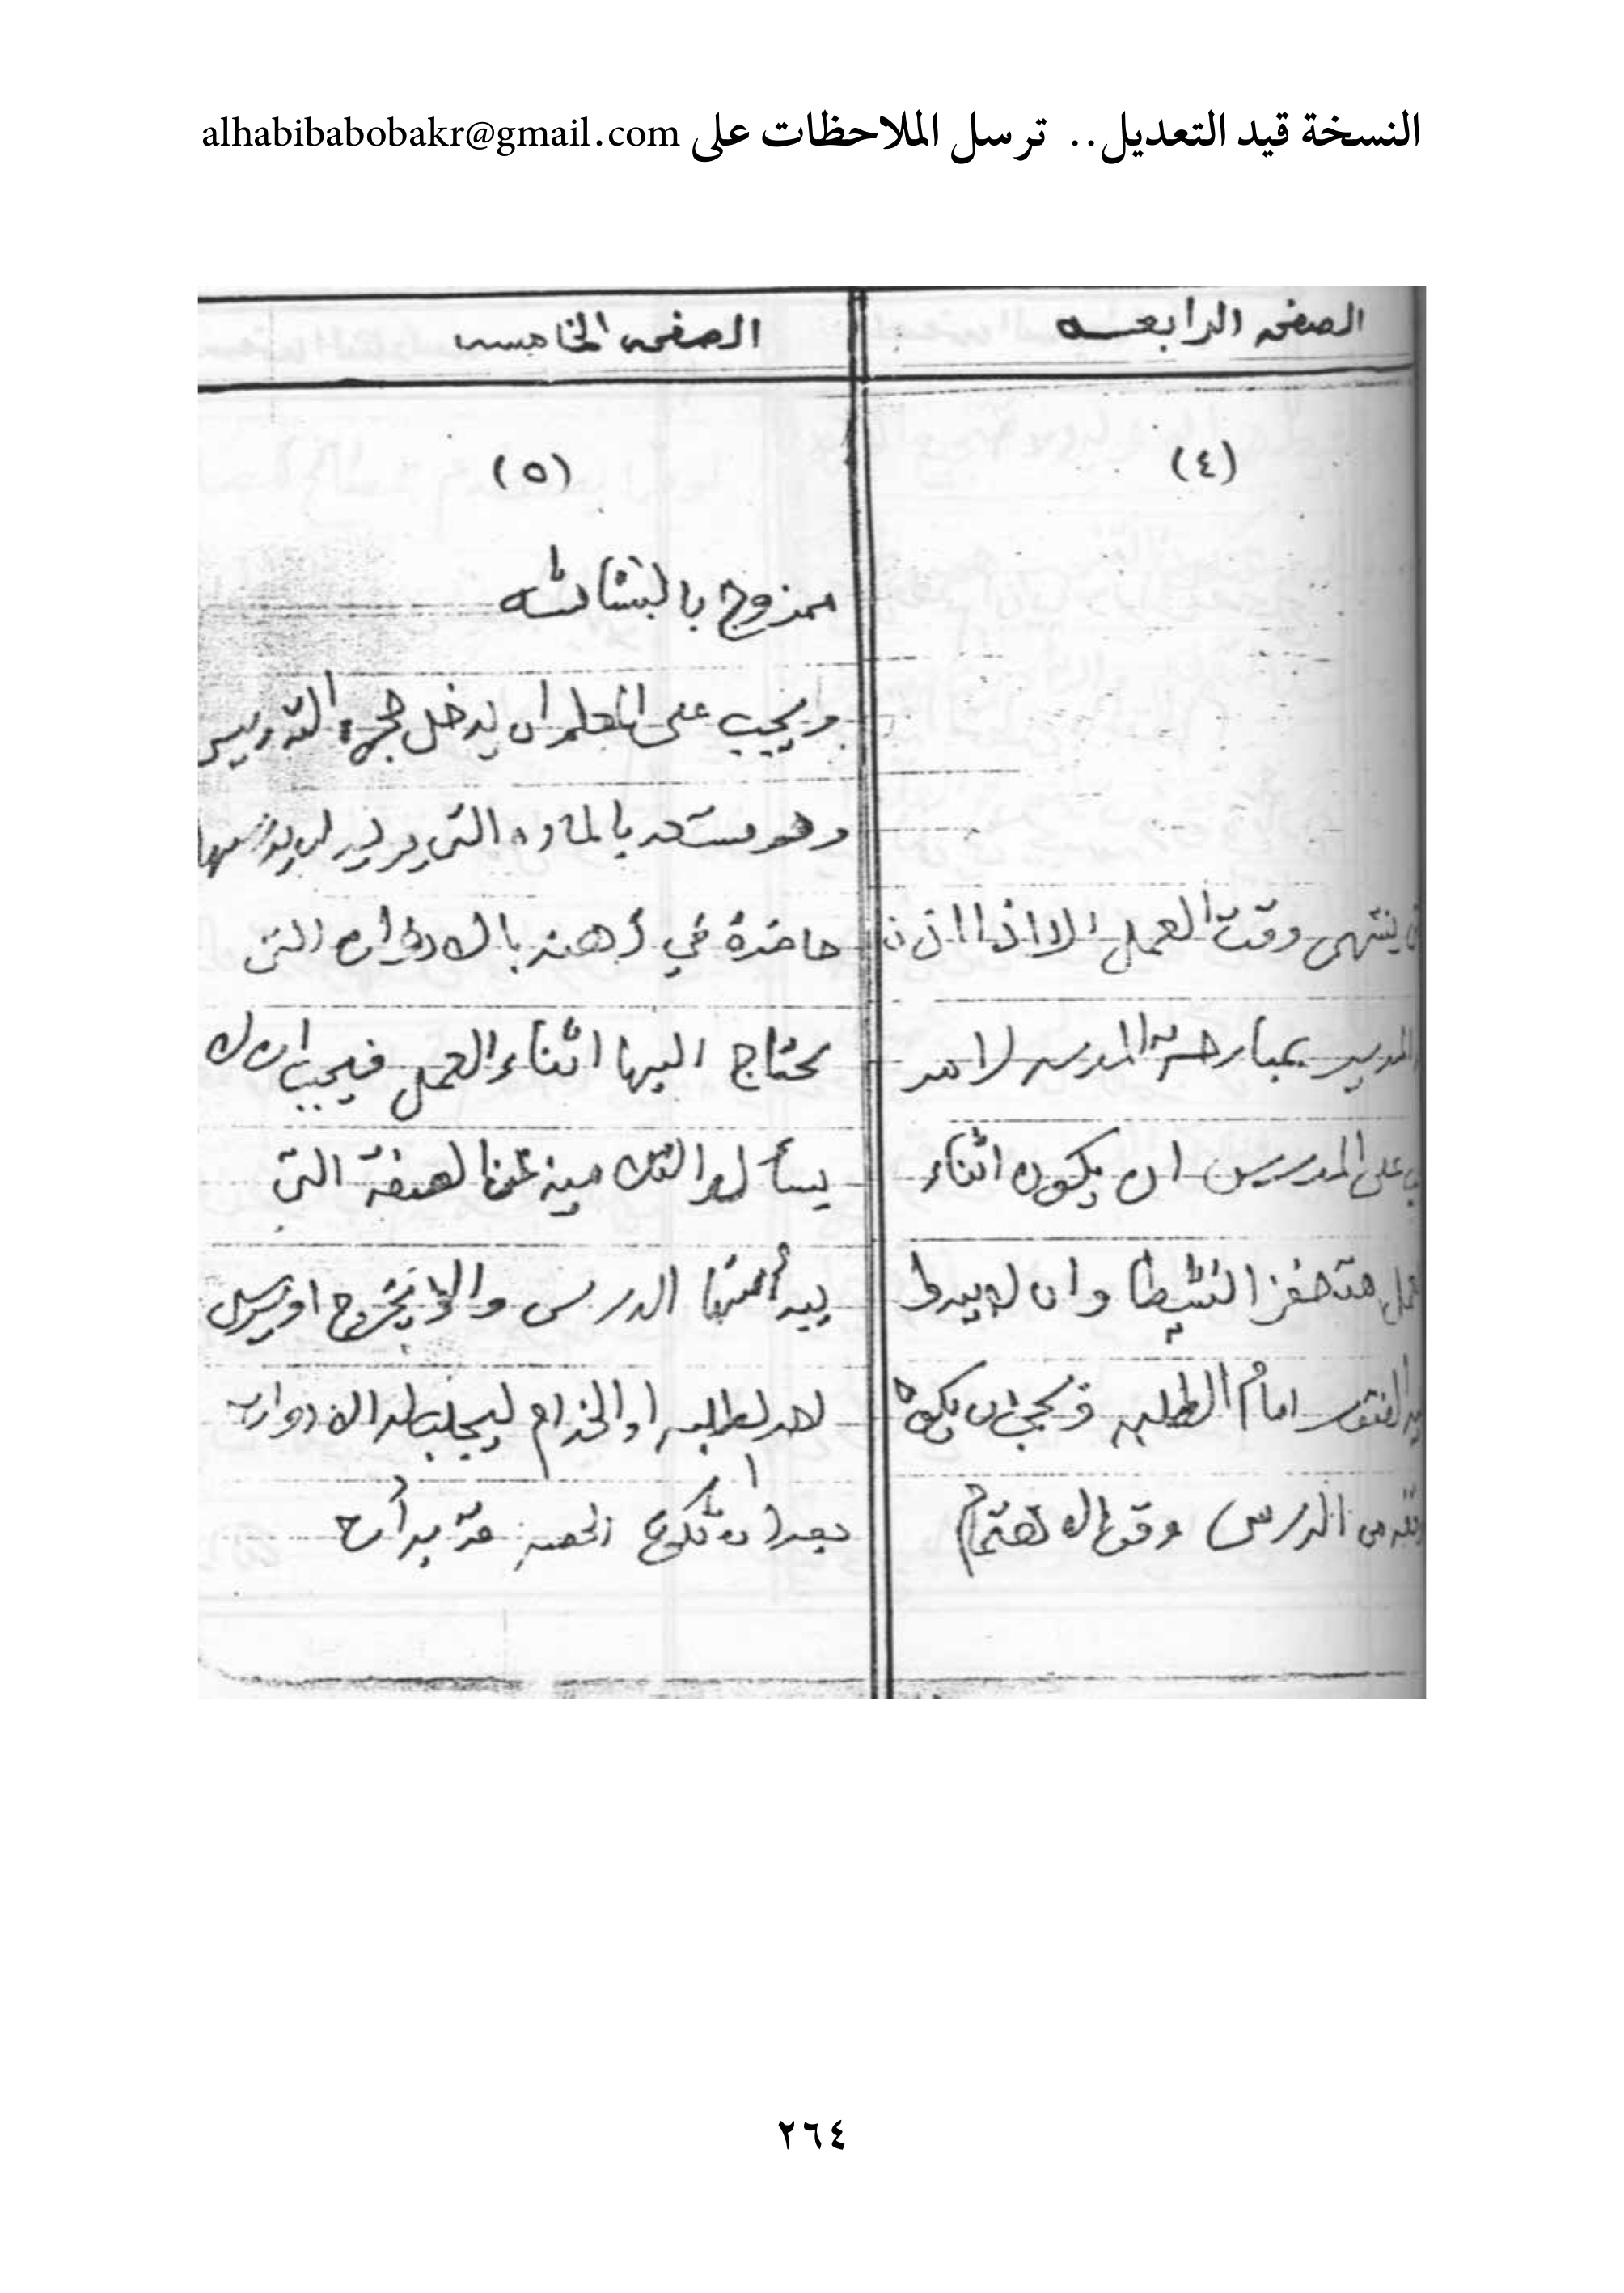 النسخة قيد التعديل.. ترسل الملاحظات على alhabibabobakr@gmail.com
الصفحه الرابعــه
(٤)
ينتهى وقت العمل الا اذا اذن
المدير بمبارحة المدرسه لامر
على المدرس ان يكون اثناء
متحفزا نشيطا وان لا يبدا
الفتور امام الطلبه فيجب ان يكون
الدرس وقوالاهتمام
الصفحه الخامسه
(٥)
ممزوج بالبشاشه
ويجب على المعلم ان يدخل حجرة التدريس
وهو مستعد بالماده التي يريد ان يدرسها
حاضرة في ذهنه بالادوات التى
يحتاج اليها اثناء العمل فيجب ان لا
يسأل التلاميذ عن الصفحة التي
يبدأ منها الدرس والا يخرج او يرسل
احد الطلبه او الخدام ليجلب له الادوات
بعد ان تكون الحصه قد بدأت
٢٦٤